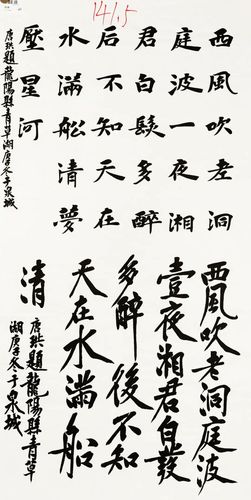 141.5
西風吹老洞
庭波一夜湘
君白髮多醉
后不知天在
水滿舩清夢
壓星河
唐珙題龍陽縣青草湖庚冬于泉城
西風吹老洞庭波
壹夜湘君白髮
多醉後不知
天在水滿船
清
唐珙題龍陽縣青草
湖庚冬于泉城